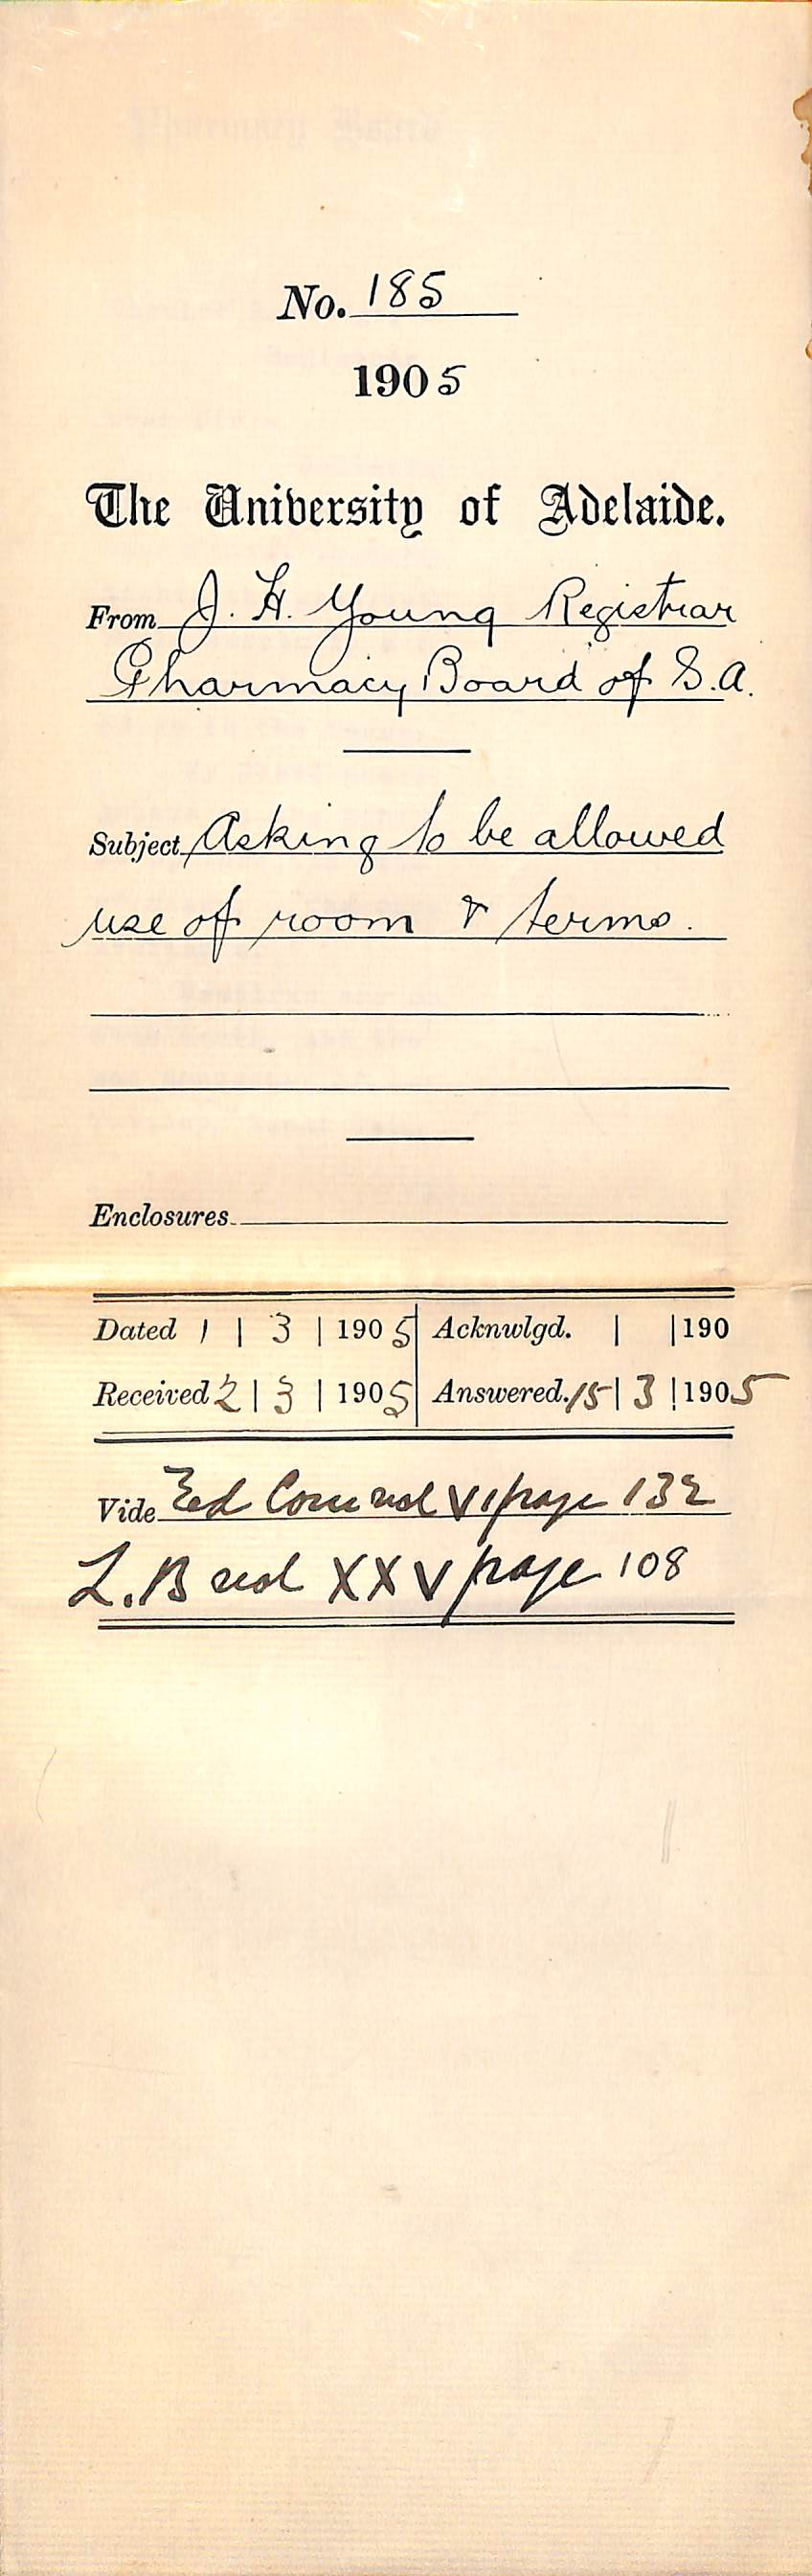 No. 185
1905
The University of Adelaide.
From J. H. Young Registrar
Pharmacy Board of S.A.
Subject Asking to be allowed
use of room & terms.
Enclosures
Dated 1 | 3 | 1905 Acknwlgd. | | 190
Received 2 | 3 | 1905 Answered. 15 | 3 | 1905
Vide Ed Com vol VI page 132
L.B vol XXV page 108